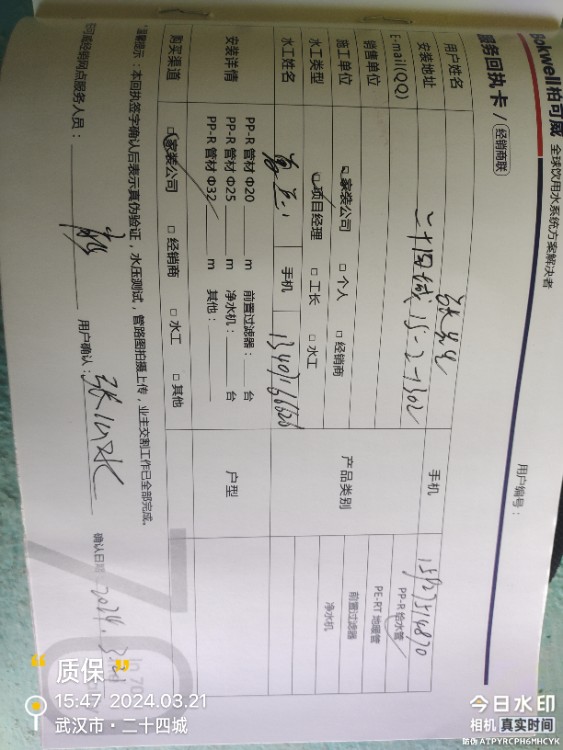 Bokwell柏可威 全球饮用水系统方案解决者
服务回执卡 / 经销商联
用户编号：
用户姓名 手机
安装地址 二十四城 15-2-1302
E-mail(QQ) 产品类别 PP-R 给水管
销售单位 PE-RT 地暖管
施工单位 家装公司 □ 个人 □ 经销商 前置过滤器
水工类型 项目经理 □ 工长 □ 水工 净水机
水工姓名 手机
安装详情 PP-R 管材 Φ20 m 前置过滤器： 台 户型
PP-R 管材 Φ25 m 净水机： 台
PP-R 管材 Φ32 m 其他：
购买渠道 家装公司 □ 经销商 □ 水工 □ 其他
温馨提示：本回执签字确认后表示真伪验证，水压测试，管路图拍摄上传，业主交割工作已全部完成。
柏可威经销网点服务人员： 用户确认： 确认日期： 2024.3.21
质保
15:47 2024.03.21
武汉市·二十四城
今日水印
相机 真实时间
防伪 ATPYRCPH6MHCYK